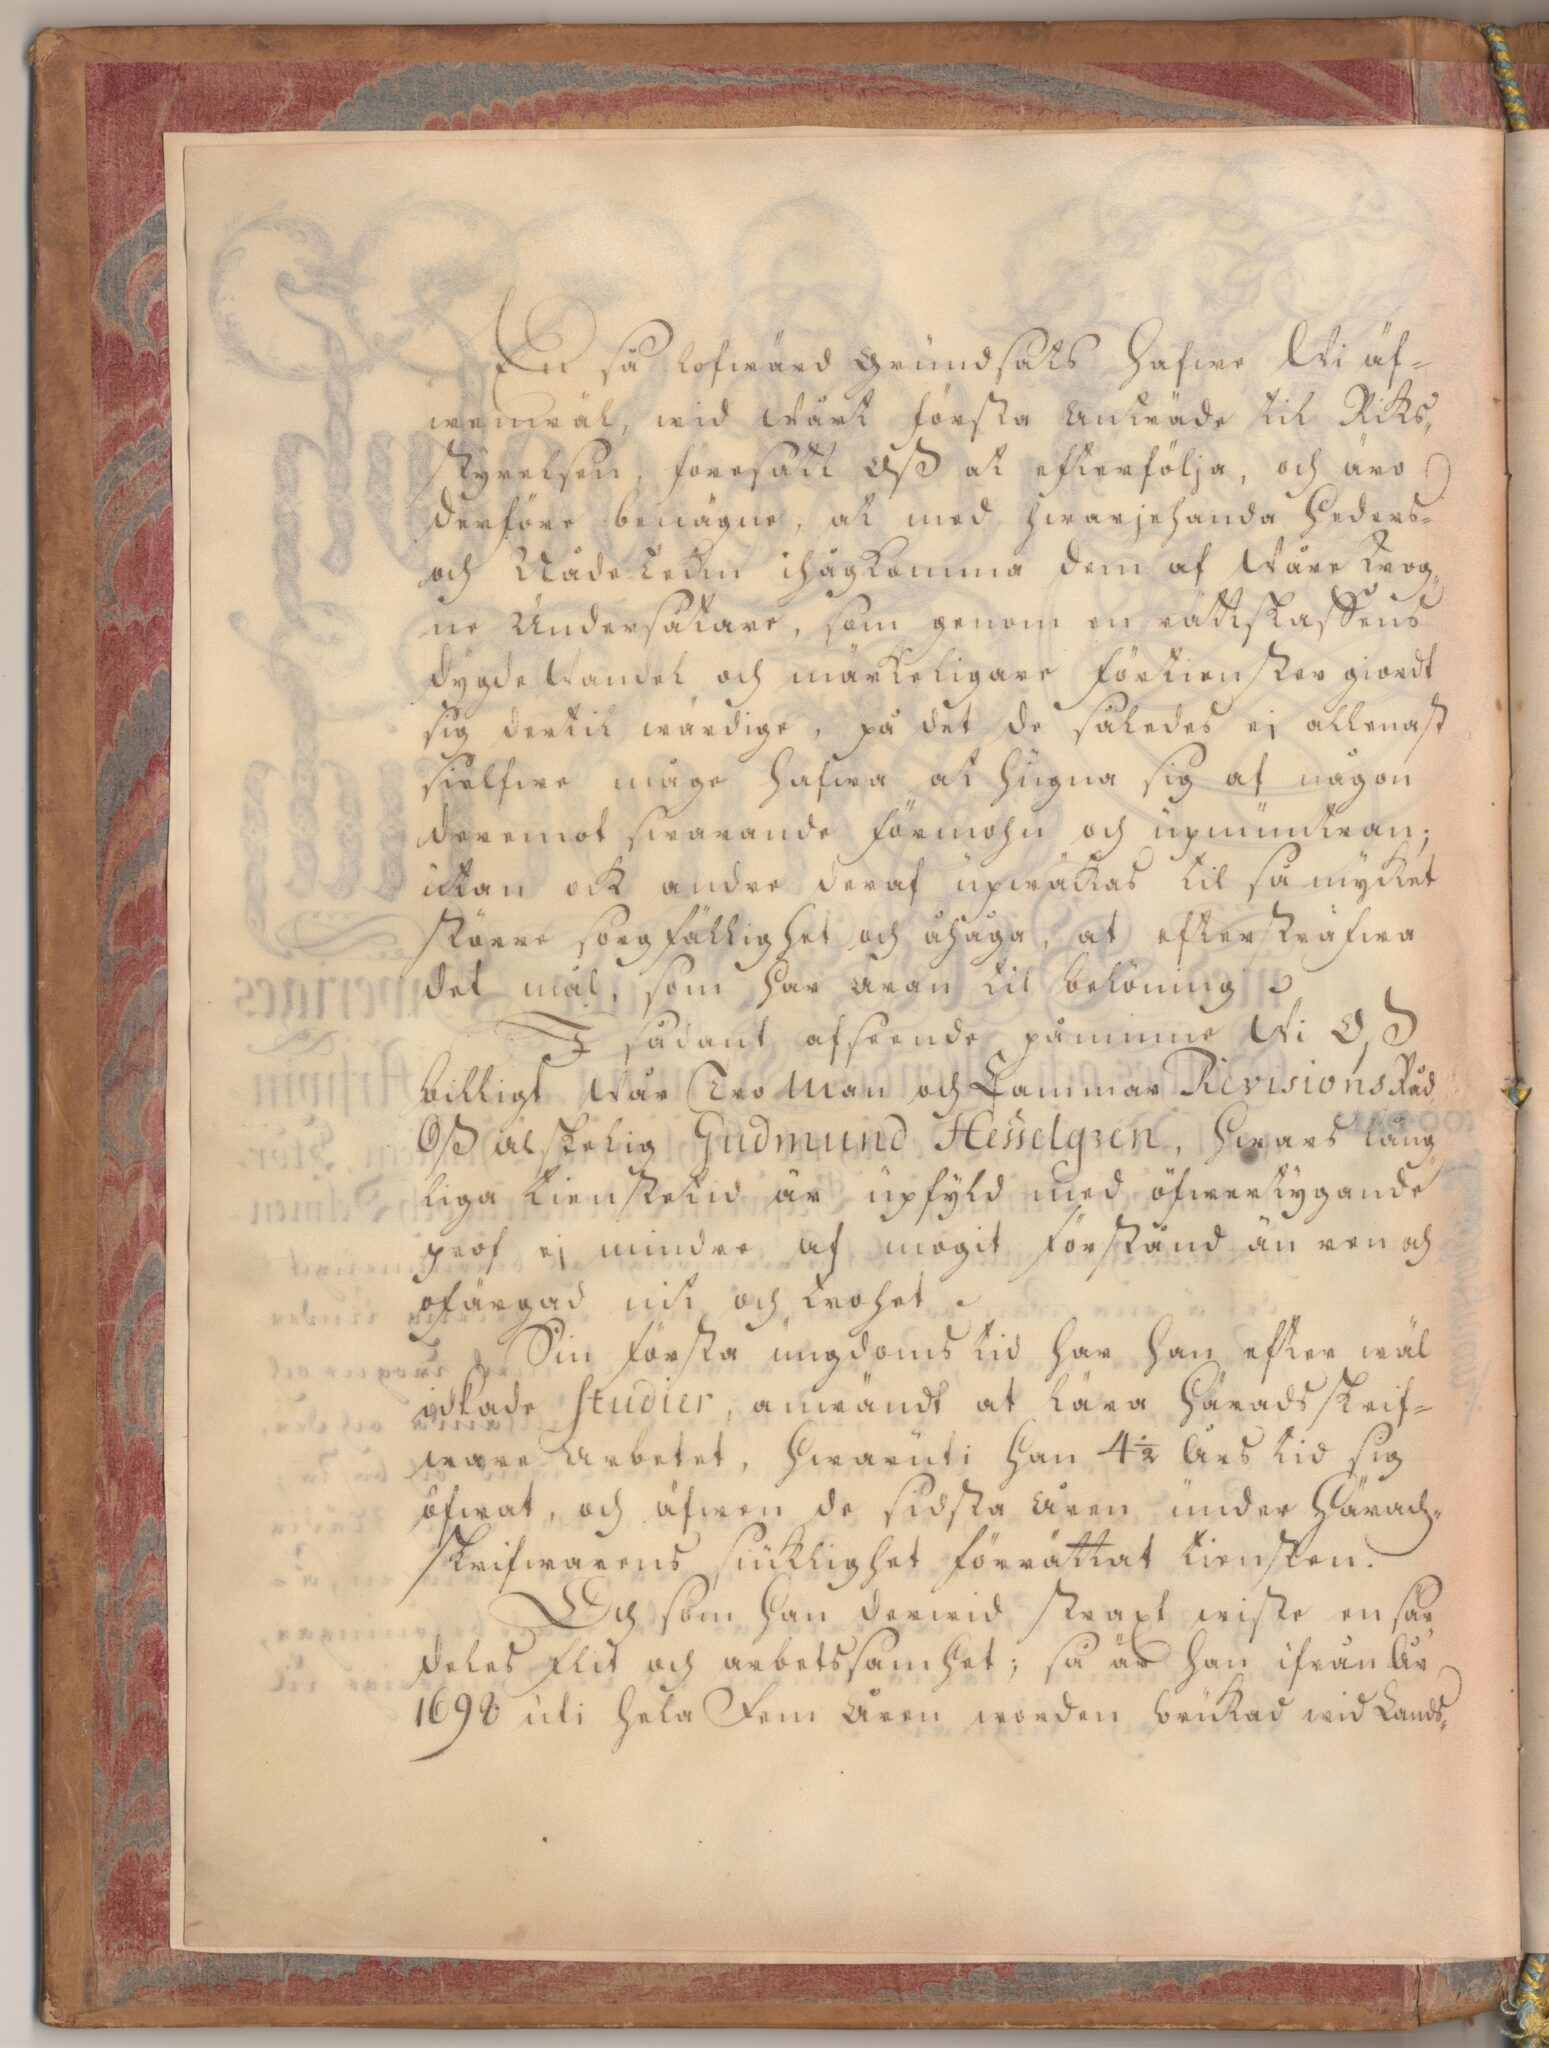 En så lofwärd Grundsats hafwe Wi äf-
wenwäl, wid Wårt första Anträde til Riks-
styrelsen, föresatt Oß at efterfölja, och äro
derföre benägne, at med hwarjehanda Heders-
och Nådetekn ihågkomma dem af Wåre trog-
ne Undersåtare, som genom en rättskaffens
dygdewandel och märkeligare förtienster giordt
sig dertil wärdige, på det de således ej allenast
sielfwe måge hafwa at hugna sig af någon
deremot swarande förmohn och upmuntran;
utan ock andre deraf upwäckas til så mycket
större sorgfällighet och åhåga, at eftersträfwa
det mål, som har äran til belöning.
I sådant afseende påminne Wi Oß
billigt Wår Tro Man och Cammar RevisionsRåd
Oß älskelig Gudmund Hesselgren, hwars lång-
liga tienstetid är upfyld med öfwertygande
prof ej mindre af mogit förstånd än ren och
ofärgad nit och trohet.
Sin första ungdoms tid har han efter wäl
idkade studier, anwändt at lära Häradsskrif-
ware Arbetet, hwaruti han 4½ Års tid sig
öfwat, och äfwen de sidsta Åren under Härads-
skrifwarens siuklighet förrättat tiensten.
Och som han derwid straxt wiste en sär-
deles flit och arbetssamhet; så är han ifrån År
1698 uti hela Fem Åren worden brukad wid Lands-